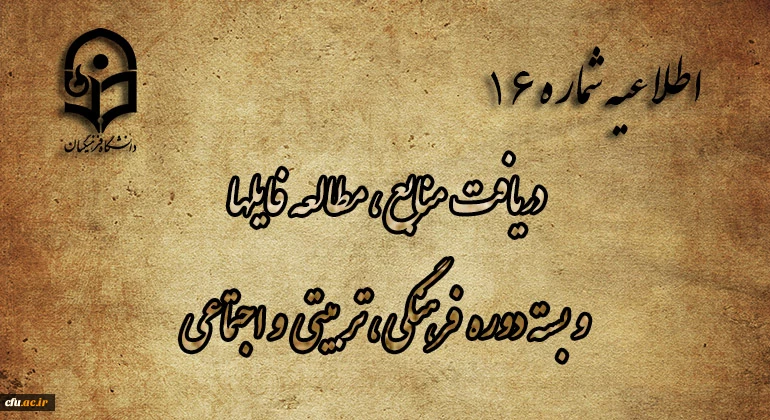 اطلاعیه شماره ۱۶
دانشگاه فرهنگیان
دریافت منابع، مطالعه فایلها
و بسته دوره فرهنگی، تربیتی و اجتماعی
cfu.ac.ir